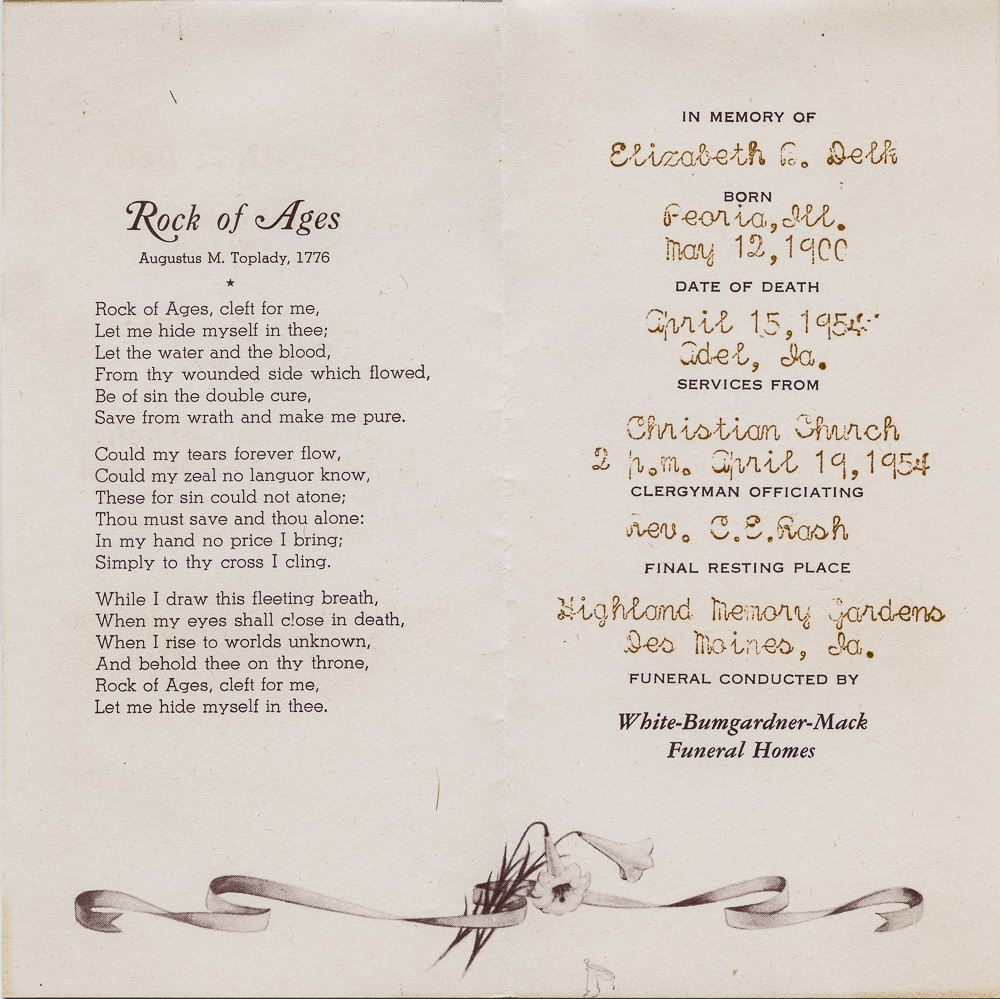 Rock of Ages
Augustus M. Toplady, 1776
★
Rock of Ages, cleft for me,
Let me hide myself in thee;
Let the water and the blood,
From thy wounded side which flowed,
Be of sin the double cure,
Save from wrath and make me pure.
Could my tears forever flow,
Could my zeal no languor know,
These for sin could not atone;
Thou must save and thou alone:
In my hand no price I bring;
Simply to thy cross I cling.
While I draw this fleeting breath,
When my eyes shall close in death,
When I rise to worlds unknown,
And behold thee on thy throne,
Rock of Ages, cleft for me,
Let me hide myself in thee.
IN MEMORY OF
Elizabeth Delk
BORN
Peoria, Ill.
May 12, 1900
DATE OF DEATH
April 15, 1954
Adel, Ia.
SERVICES FROM
Christian Church
2 p.m. April 19, 1954
CLERGYMAN OFFICIATING
Rev. C.E. Rash
FINAL RESTING PLACE
Highland Memory Gardens
Des Moines, Ia.
FUNERAL CONDUCTED BY
White-Bumgardner-Mack
Funeral Homes